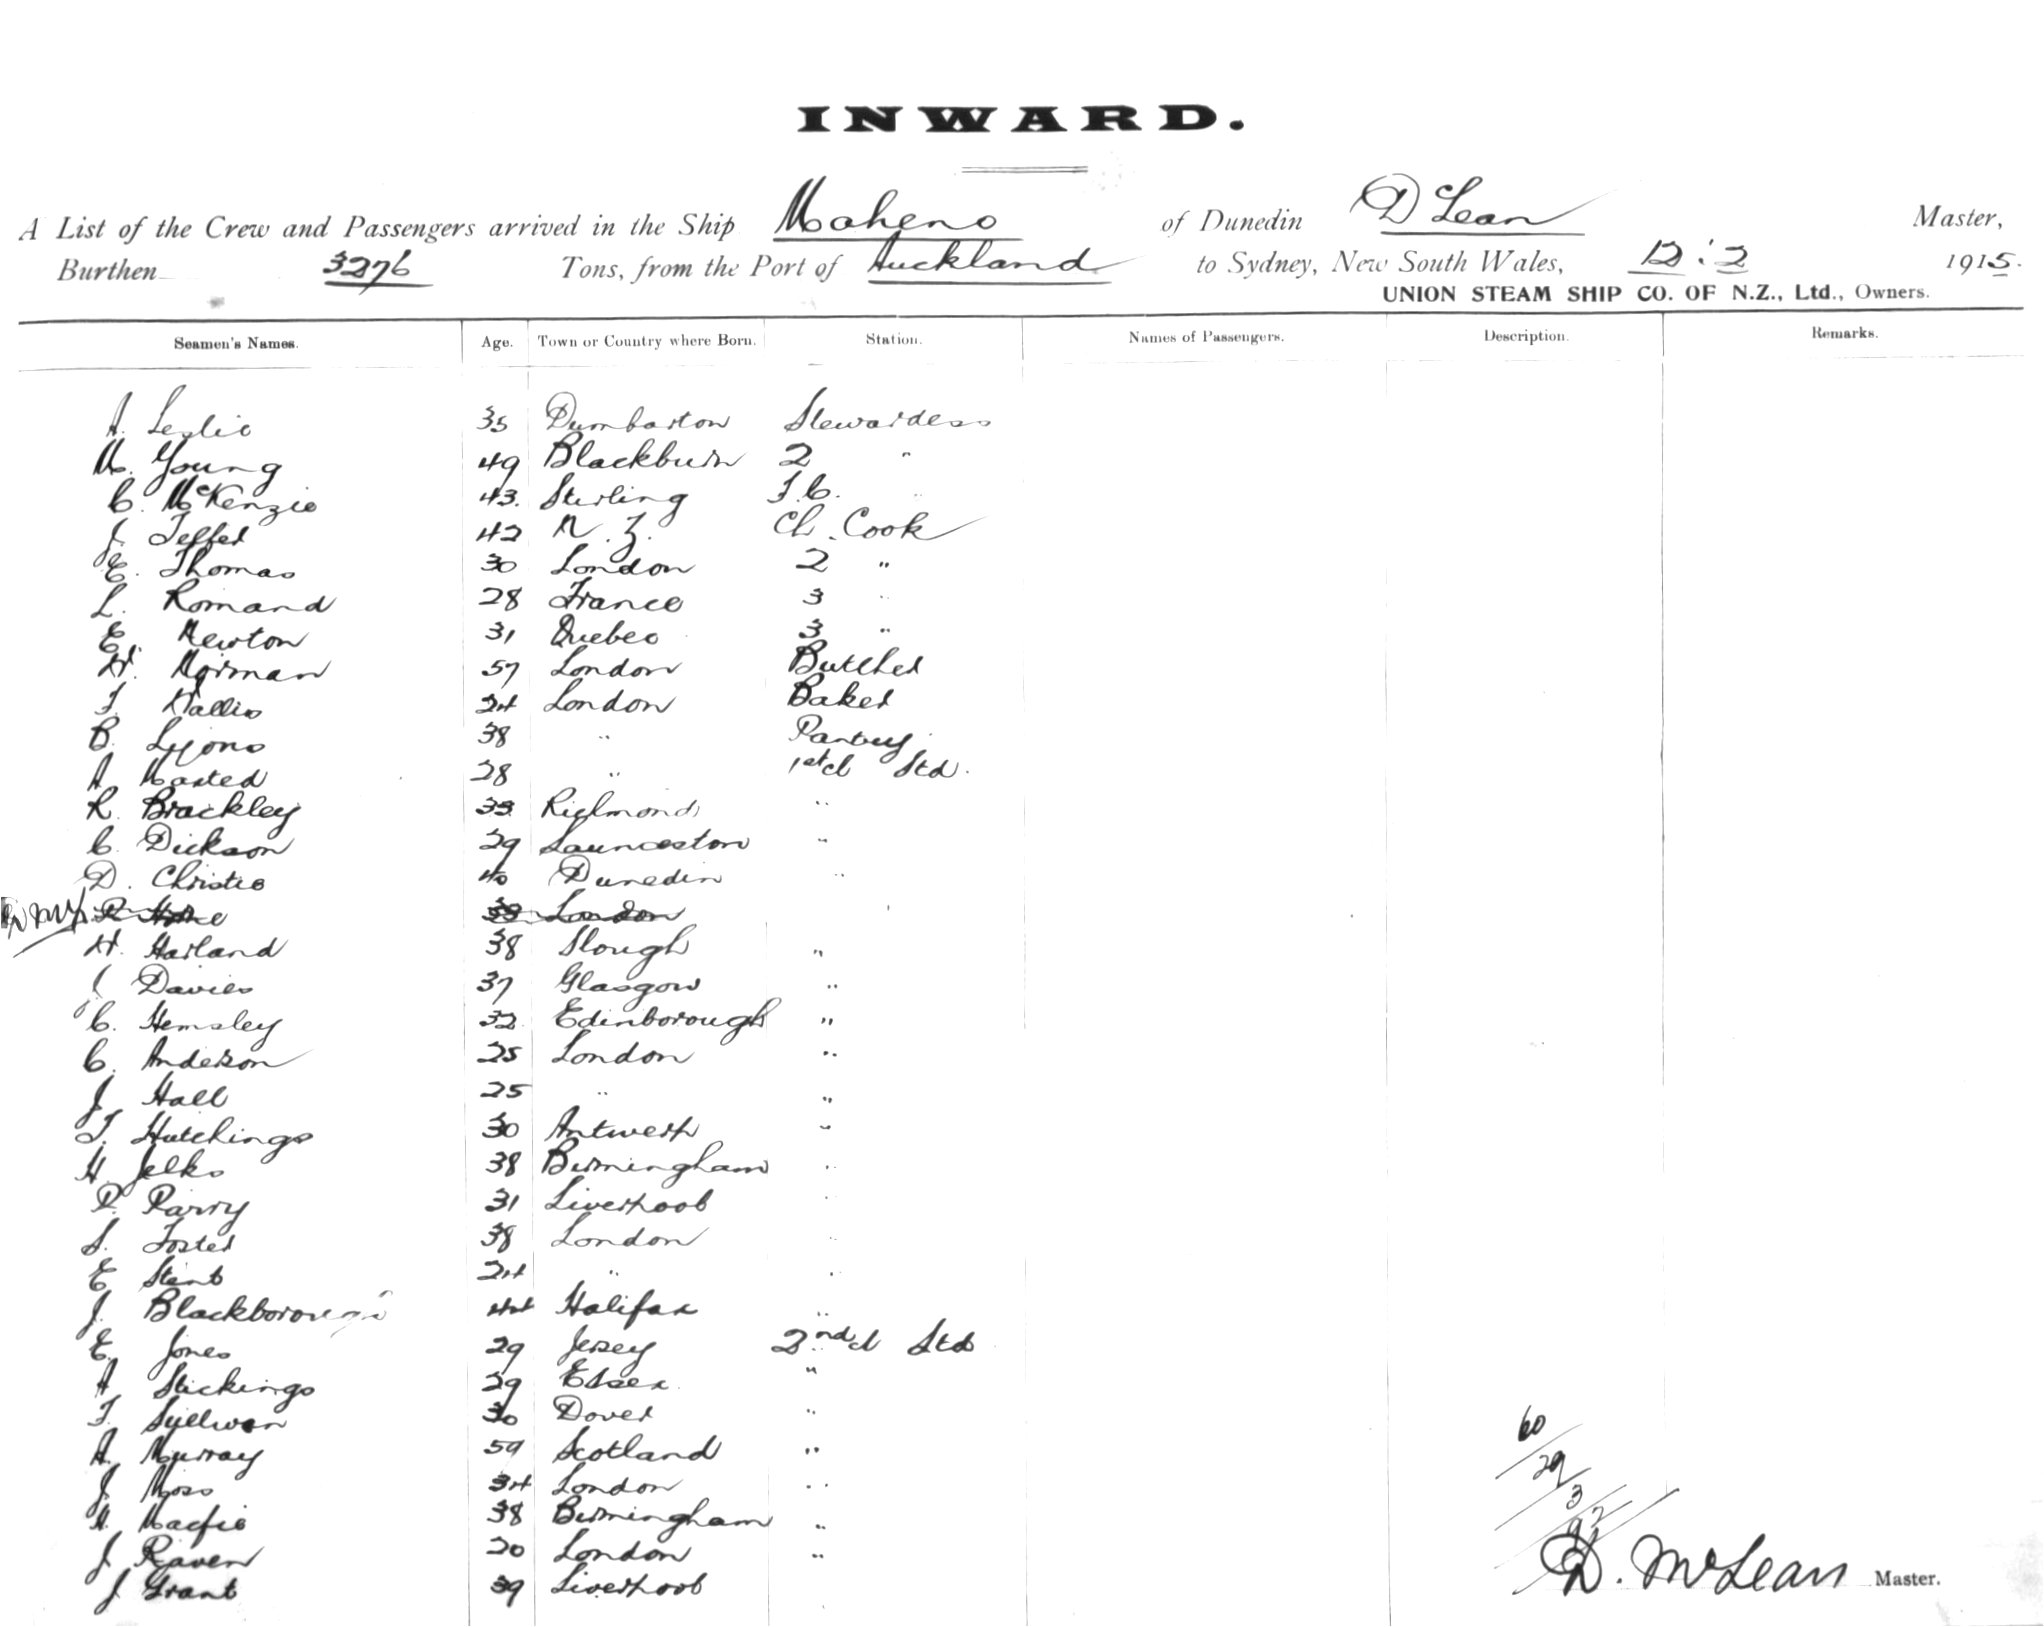 INWARD.
A List of the Crew and Passengers arrived in the Ship Maheno of Dunedin D Lean Master,
Burthen 3276 Tons, from the Port of Auckland to Sydney, New South Wales, 12 : 2 1915.
UNION STEAM SHIP CO. OF N.Z., Ltd., Owners.
Seamen's Names. Age. Town or Country where Born. Station. Names of Passengers. Description. Remarks.
A. Leslie 35 Dumbarton Stewardess
M. Young 49 Blackburn 2 "
C. McKenzie 43. Stirling T.C.
J. Jeffer 42 N.Z. Ch. Cook
E. Thomas 30 London 2 "
L. Romand 28 France 3 "
E. Newton 31 Quebec 3 "
H. Norman 57 London Butcher
T. Wallis 24 London Baker
B. Lyons 38 " Pantry
A Marted 28 " 1st cl Std.
R. Brackley 33 Richmond "
C. Dickson 29 Launceston "
D. Christie 40 Dunedin "
R 38 London
H. Harland 38 Slough "
J Davies 37 Glasgow "
C. Hemsley 32 Edinborough "
C. Anderson 25 London "
J. Hall 25 " "
T. Hutchings 30 Antwerp "
H Jelks 38 Birmingham "
P. Parry 31 Liverpool "
S. Foster 38 London "
E Stent 24 " "
J. Blackborough 44 Halifax "
E. Jones 29 Jersey 2nd cl Std
A Stickings 29 Essex "
T. Sullivan 30 Dover "
A. Murray 59 Scotland "
J. Moss 34 London "
H. Macfie 38 Birmingham "
J. Raven 20 London "
J Grant 39 Liverpool
60
29
3
92
D. McLean Master.